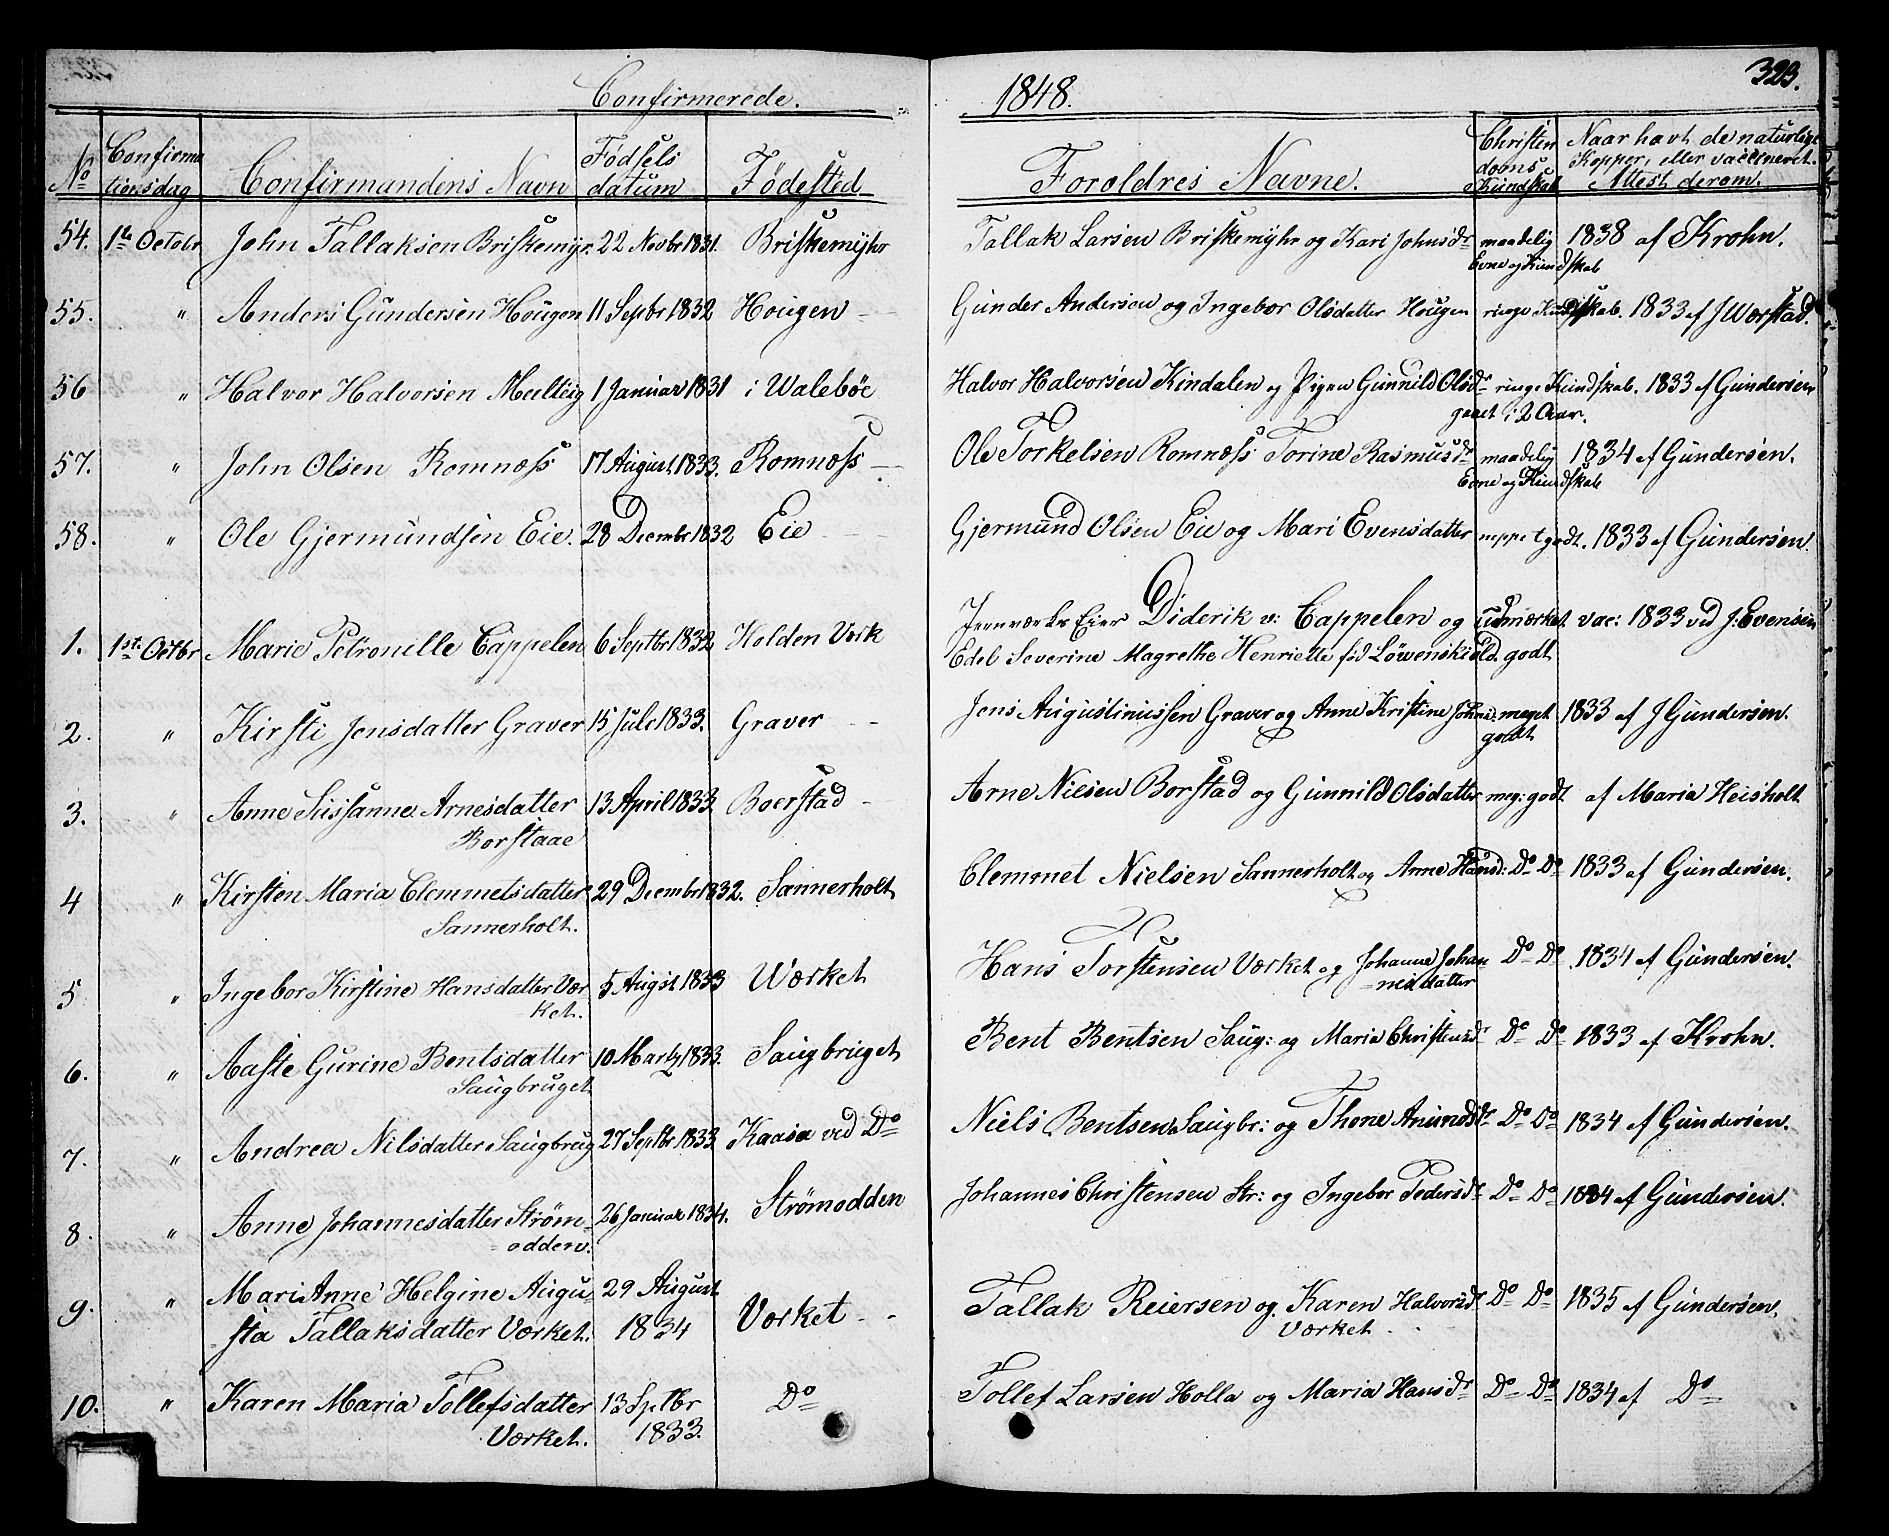 Confirmerede. 1848. 323.
No Confirmationsdag Confirmandens Navn Fødselsdatum Fødested Foroldres Navne. Christendoms Kundskab Naar havt de naturlige Kopper, eller vaccineret. Attest derom.
54. 1ste Octobr John Tallaksen Briskemyr. 22 Novbr 1831. Briskemyhr Tallak Larsen Briskemyhr og Kari Johnsdr maadelig 1838 af Krohn.
Evne og Kundskab
55. " Anders Gundersen Hougen 11 Septbr 1832 Hougen Gunder Andersen og Ingebor Olsdatter Hougen ringe Kundskab. 1833 af J Worstad.
56 " Halvor Halvorsen 1 Januar 1831 i Walebøe Halvor Halvorsen Kindalen og Pigen Gunnild Olsdr ringe Kundskab. 1833 af Gundersen
gaaet i 2 Aar.
57. " John Olsen Romnæss 17 August 1833. Romnæss Ole Torkelsen Romnæss Torine Rasmusdr maadelig 1834 af Gundersen.
Evne og Kundskab
58. " Ole Gjermundsen Eie. 28 Decmbr 1832 Eie Gjermund Olsen Eie og Mari Evensdatter neppe t godt. 1833 af Gundersen.
1. 1st. Octbr Marie Petronille Cappelen 6 Septbr 1832 Holden Verk Jernværks Eier Diderik v: Cappelen og udmærket vac: 1833 ved J: Evensen
Edel Severine Magrethe Henriette fød Løwenskiold. godt
2. " Kirsti Jensdatter Graver 15 Juli 1833. Graver Jens Augustinussen Graver og Anne Kristine Johns. meget 1833 af J Gundersen.
godt
3. " Anne Sussanne Arnesdatter 13 April 1833 Boerstad Arne Nielsen Borstad og Gunnild Olsdatter meg: godt af Maria Heisholt
Borstaae
4 " Kirsten Maria Clemmetsdatter 29 Decmbr 1832. Sannerholt Clemmet Nielsen Sannerholt og Anne Hansd: Do Do 1833 af Gundersen.
Sannerholt.
5 " Ingebor Kirstine Hansdatter Vær 5 Augst 1833 Wærket Hans Torstensen Værket og Johanne Johan Do Do 1834 af Gundersen.
ket. =nesdatter
6. " Aaste Gurine Bentsdatter 10 Martz 1833. Saugbruget Bent Bentsen Saug: og Maria Christensdr Do Do 1833 af Krohn.
Saugbruget
7. " Andrea Nilsdatter Saugbrug 27 Septbr 1833 Kaasa ved Do Niels Bentsen Saugbr: og Thone Anundsdr Do Do 1834 af Gundersen.
8. " Anne Johannesdatter Strøm= 26 Januar 1834. Strømodden Johannes Christensen Str: og Ingebor Pedersdr Do Do 1834 af Gundersen.
=odden.
9. " Mari Anne Helgine Augu= 29 August Værket Tallak Reiersen og Karen Halvorsdr Do Do 1835 af Gundersen.
=sta Tallaksdatter Værket. 1834 Værket
10. " Karen Maria Tollefsdatter 13 Sptbr Do Tollef Larsen Holla og Maria Hansdr Do Do 1834 af Do
Værket. 1833.